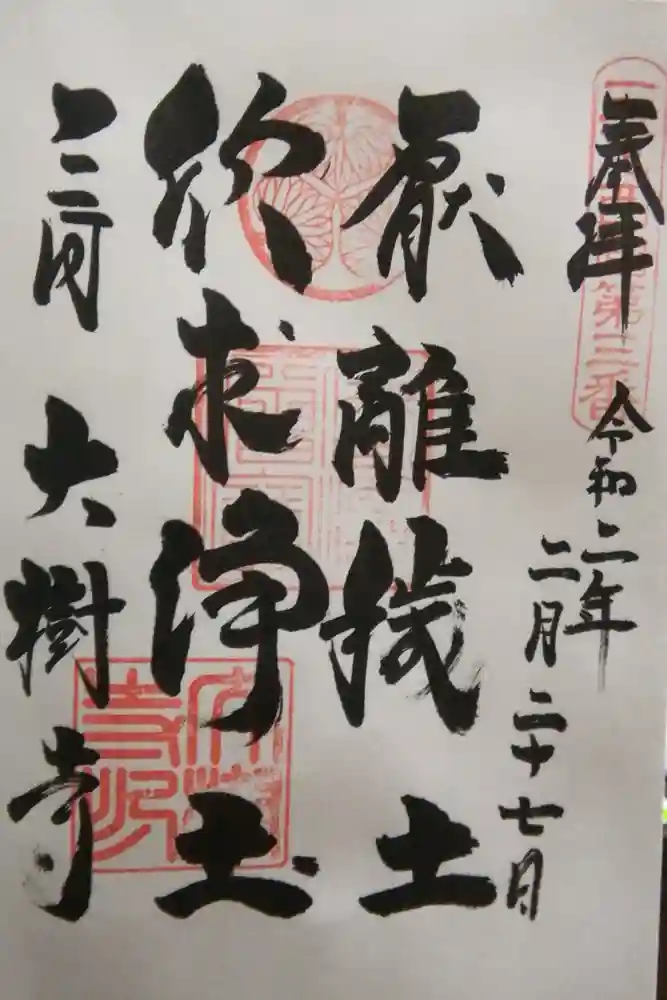 奉拝
第三番
令和二年
二月二十七日
厭離穢土
欣求浄土
三河 大樹寺